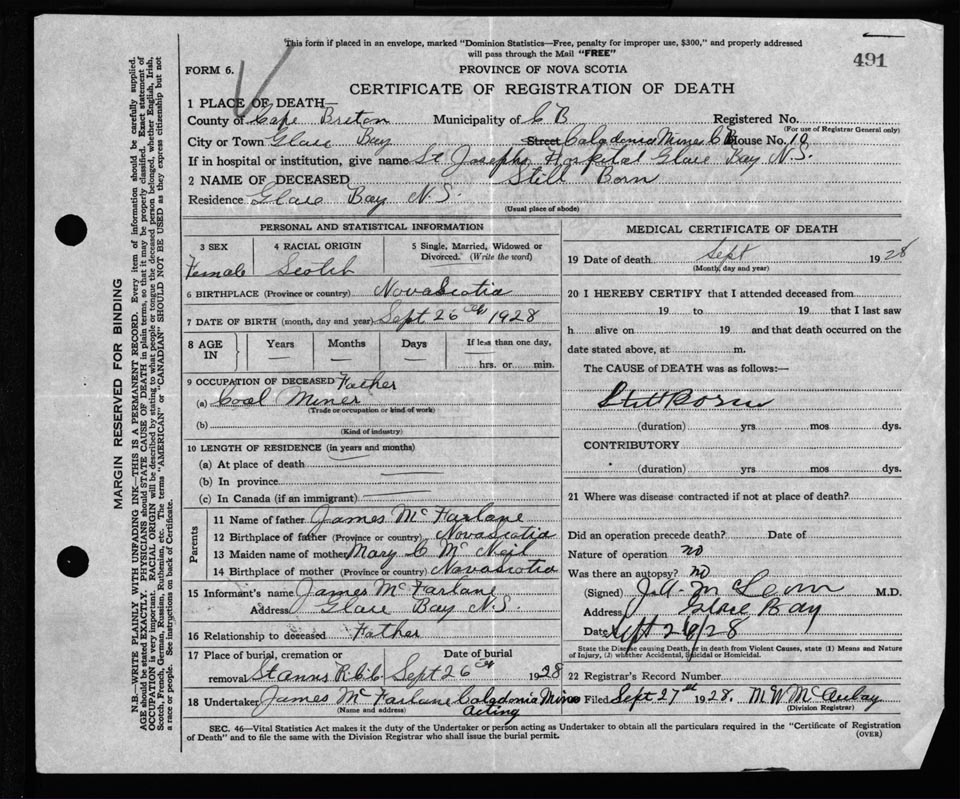 This form if placed in an envelope, marked "Dominion Statistics—Free, penalty for improper use, $300," and properly addressed
will pass through the Mail "FREE"
491
FORM 6.
PROVINCE OF NOVA SCOTIA
CERTIFICATE OF REGISTRATION OF DEATH
1 PLACE OF DEATH—
County of Cape Breton Municipality of C B Registered No.
(For use of Registrar General only)
City or Town Glace Bay Street Caladonia Mines C B House No. 10
If in hospital or institution, give name St Josephs Hospital Glace Bay N.S.
2 NAME OF DECEASED Still Born
Residence Glace Bay N.S.
(Usual place of abode)
PERSONAL AND STATISTICAL INFORMATION
3 SEX 4 RACIAL ORIGIN 5 Single, Married, Widowed or Divorced. (Write the word)
Female Scotch
6 BIRTHPLACE (Province or country) Nova Scotia
7 DATE OF BIRTH (month, day and year) Sept 26 1928
8 AGE IN Years Months Days If less than one day, hrs. or min.
9 OCCUPATION OF DECEASED Father
(a) Coal Miner
(Trade or occupation or kind of work)
(b)
(Kind of industry)
10 LENGTH OF RESIDENCE (in years and months)
(a) At place of death
(b) In province
(c) In Canada (if an immigrant)
Parents
11 Name of father James Mc Farlane
12 Birthplace of father (Province or country) Novascotia
13 Maiden name of mother Mary C Mc Neil
14 Birthplace of mother (Province or country) Novascotia
15 Informant's name James Mc Farlane
Address Glace Bay N.S.
16 Relationship to deceased Father
17 Place of burial, cremation or removal St Anns Date of burial Sept 26 1928
18 Undertaker James Mc Farlane Caladonia Mines
(Name and address) acting
MEDICAL CERTIFICATE OF DEATH
19 Date of death Sept 1928
(Month, day and year)
20 I HEREBY CERTIFY that I attended deceased from
19 to 19 that I last saw
h alive on 19 and that death occurred on the
date stated above, at m.
The CAUSE of DEATH was as follows:—
Stillborn
(duration) yrs mos dys.
CONTRIBUTORY
(duration) yrs mos dys.
21 Where was disease contracted if not at place of death?
Did an operation precede death? Date of
Nature of operation no
Was there an autopsy? no
(Signed) M.D.
Address Glace Bay
Date Sept 26/28
State the Disease causing Death, or in death from Violent Causes, state (1) Means and Nature
of Injury, (2) whether Accidental, Suicidal or Homicidal.
22 Registrar's Record Number
Filed Sept 27th 1928.
(Division Registrar)
SEC. 46—Vital Statistics Act makes it the duty of the Undertaker or person acting as Undertaker to obtain all the particulars required in the "Certificate of Registration
of Death" and to file the same with the Division Registrar who shall issue the burial permit.
(OVER)
MARGIN RESERVED FOR BINDING
N.B.—WRITE PLAINLY WITH UNFADING INK—THIS IS A PERMANENT RECORD. Every item of information should be carefully supplied.
AGE should be stated EXACTLY. PHYSICIANS should STATE CAUSE OF DEATH in plain terms, so that it may be properly classified. Exact statement of
OCCUPATION is very important. RACIAL ORIGIN will be described by stating to what people or tongue the deceased person belonged, whether English, Irish,
Scotch, French, German, Russian, Ruthenian, etc. The terms "AMERICAN" or "CANADIAN" SHOULD NOT BE USED as they express citizenship but not
a race or people. See instructions on back of Certificate.